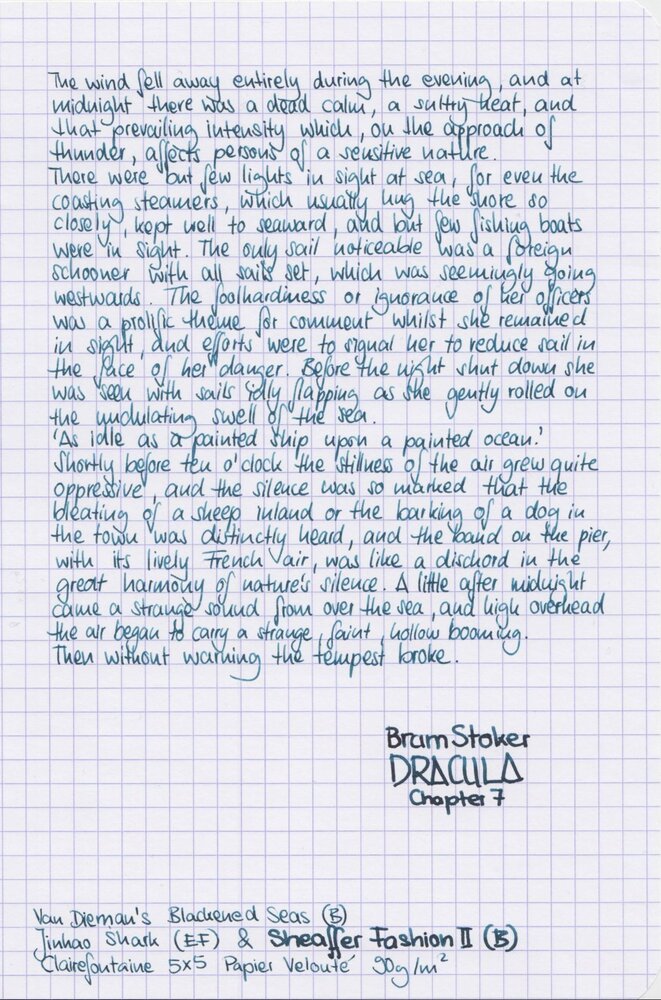 The wind fell away entirely during the evening, and at
midnight there was a dead calm, a sultry heat, and
that prevailing intensity which, on the approach of
thunder, affects persons of a sensitive nature.
There were but few lights in sight at sea, for even the
coasting steamers, which usually hug the shore so
closely, kept well to seaward, and but few fishing boats
were in sight. The only sail noticeable was a foreign
schooner with all sails set, which was seemingly going
westwards. The foolhardiness or ignorance of her officers
was a prolific theme for comment whilst she remained
in sight, and efforts were to signal her to reduce sail in
the face of her danger. Before the night shut down she
was seen with sails idly flapping as she gently rolled on
the undulating swell of the sea.
'As idle as a painted ship upon a painted ocean.'
Shortly before ten o'clock the stillness of the air grew quite
oppressive, and the silence was so marked that the
bleating of a sheep inland or the barking of a dog in
the town was distinctly heard, and the band on the pier,
with its lively French air, was like a dischord in the
great harmony of nature's silence. A little after midnight
came a strange sound from over the sea, and high overhead
the air began to carry a strange, faint, hollow booming.
Then without warning the tempest broke.
Bram Stoker
DRACULA
Chapter 7
Van Dieman's Blackened Seas (B)
Jinhao Shark (EF) & Sheaffer Fashion II (B)
Clairefontaine 5x5 Papier Velouté 90g/m²